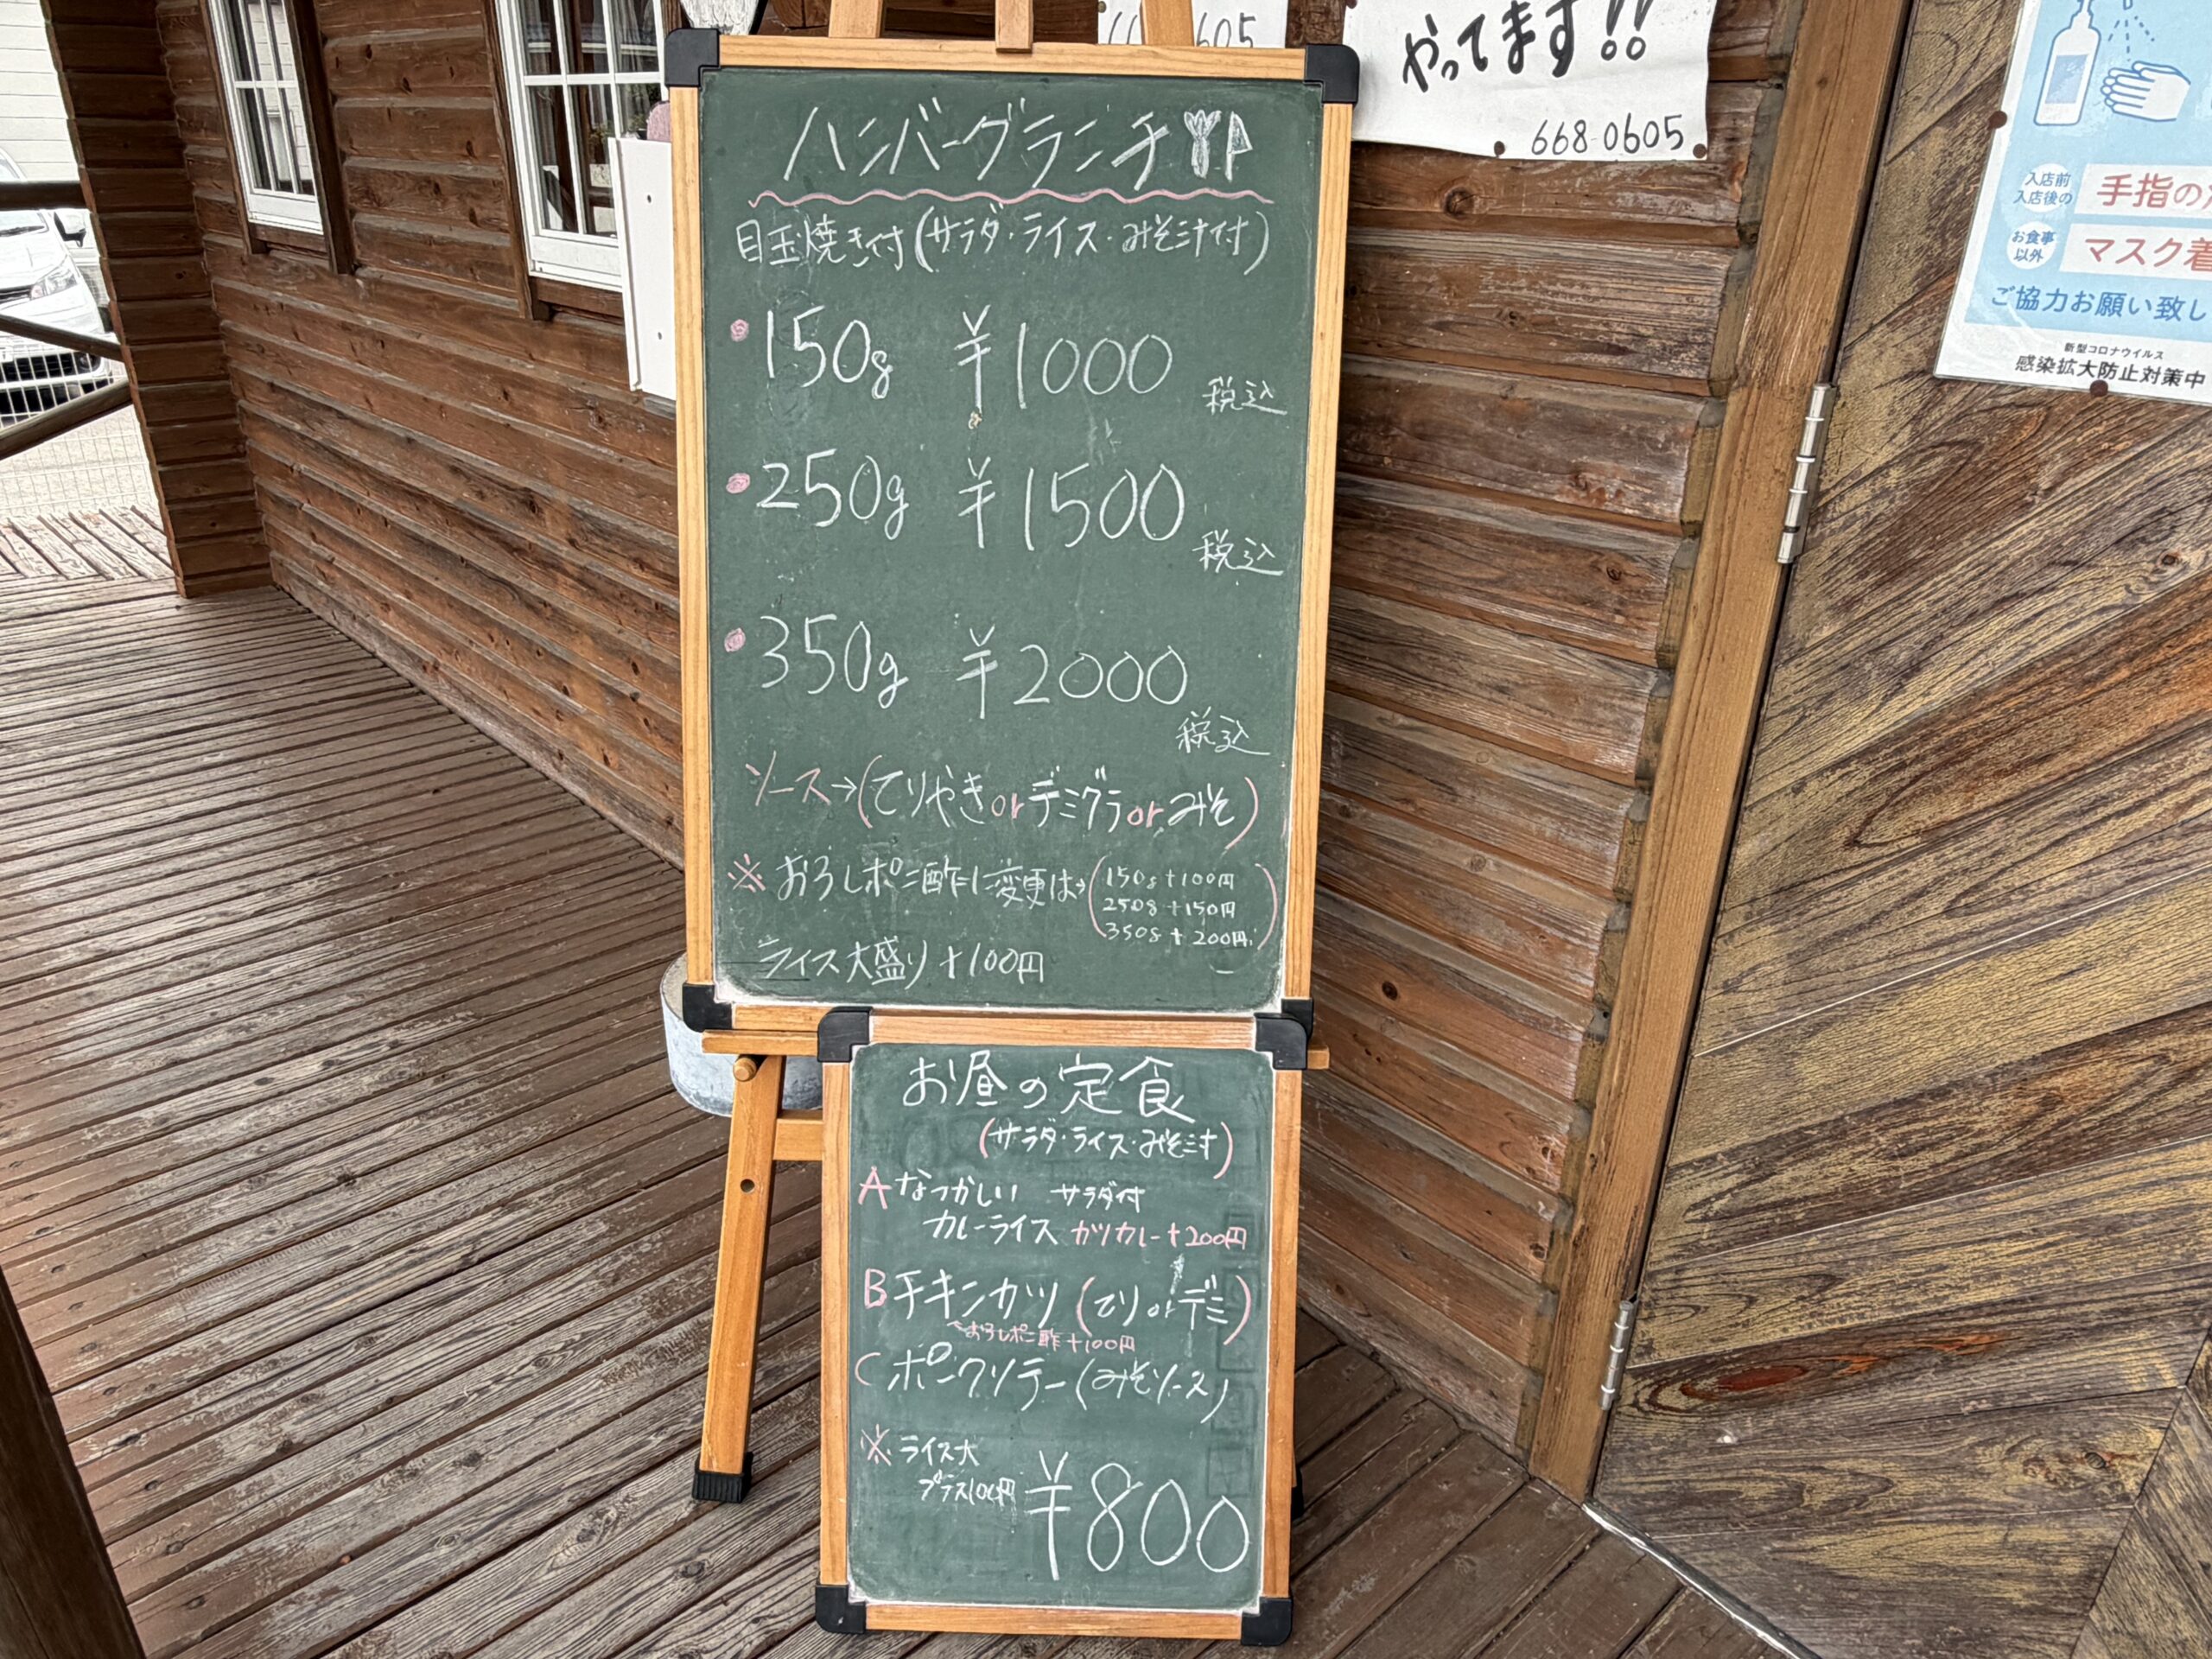 ハンバーグランチ
目玉焼き付(サラダ・ライス・みそ汁付)
・150g ¥1000 税込
・250g ¥1500 税込
・350g ¥2000 税込
ソース→(てりやきorデミグラorみそ)
※おろしポン酢に変更は→(150g+100円
250g+150円
350g+200円)
ライス大盛り+100円
お昼の定食
(サラダ・ライス・みそ汁)
A なつかしい サラダ付
カレーライス カツカレー+200円
B チキンカツ(てりorデミ)
おろしポン酢+100円
C ポークソテー(みそソース)
※ライス大
プラス100円 ¥800
やってます!!
668-0605
入店前
入店後の
手指の
お食事
以外
マスク着
ご協力お願い致し
新型コロナウイルス
感染拡大防止対策中